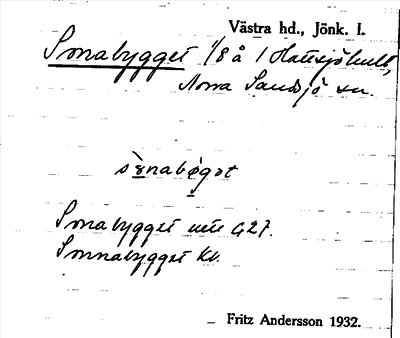 Västra hd., Jönk. l.
Smabygget 1/8 å 1 Hattsjöhult,
Norra Sandsjö sn.
Smabygget
Smmabygget kv.
Fritz Andersson 1932.